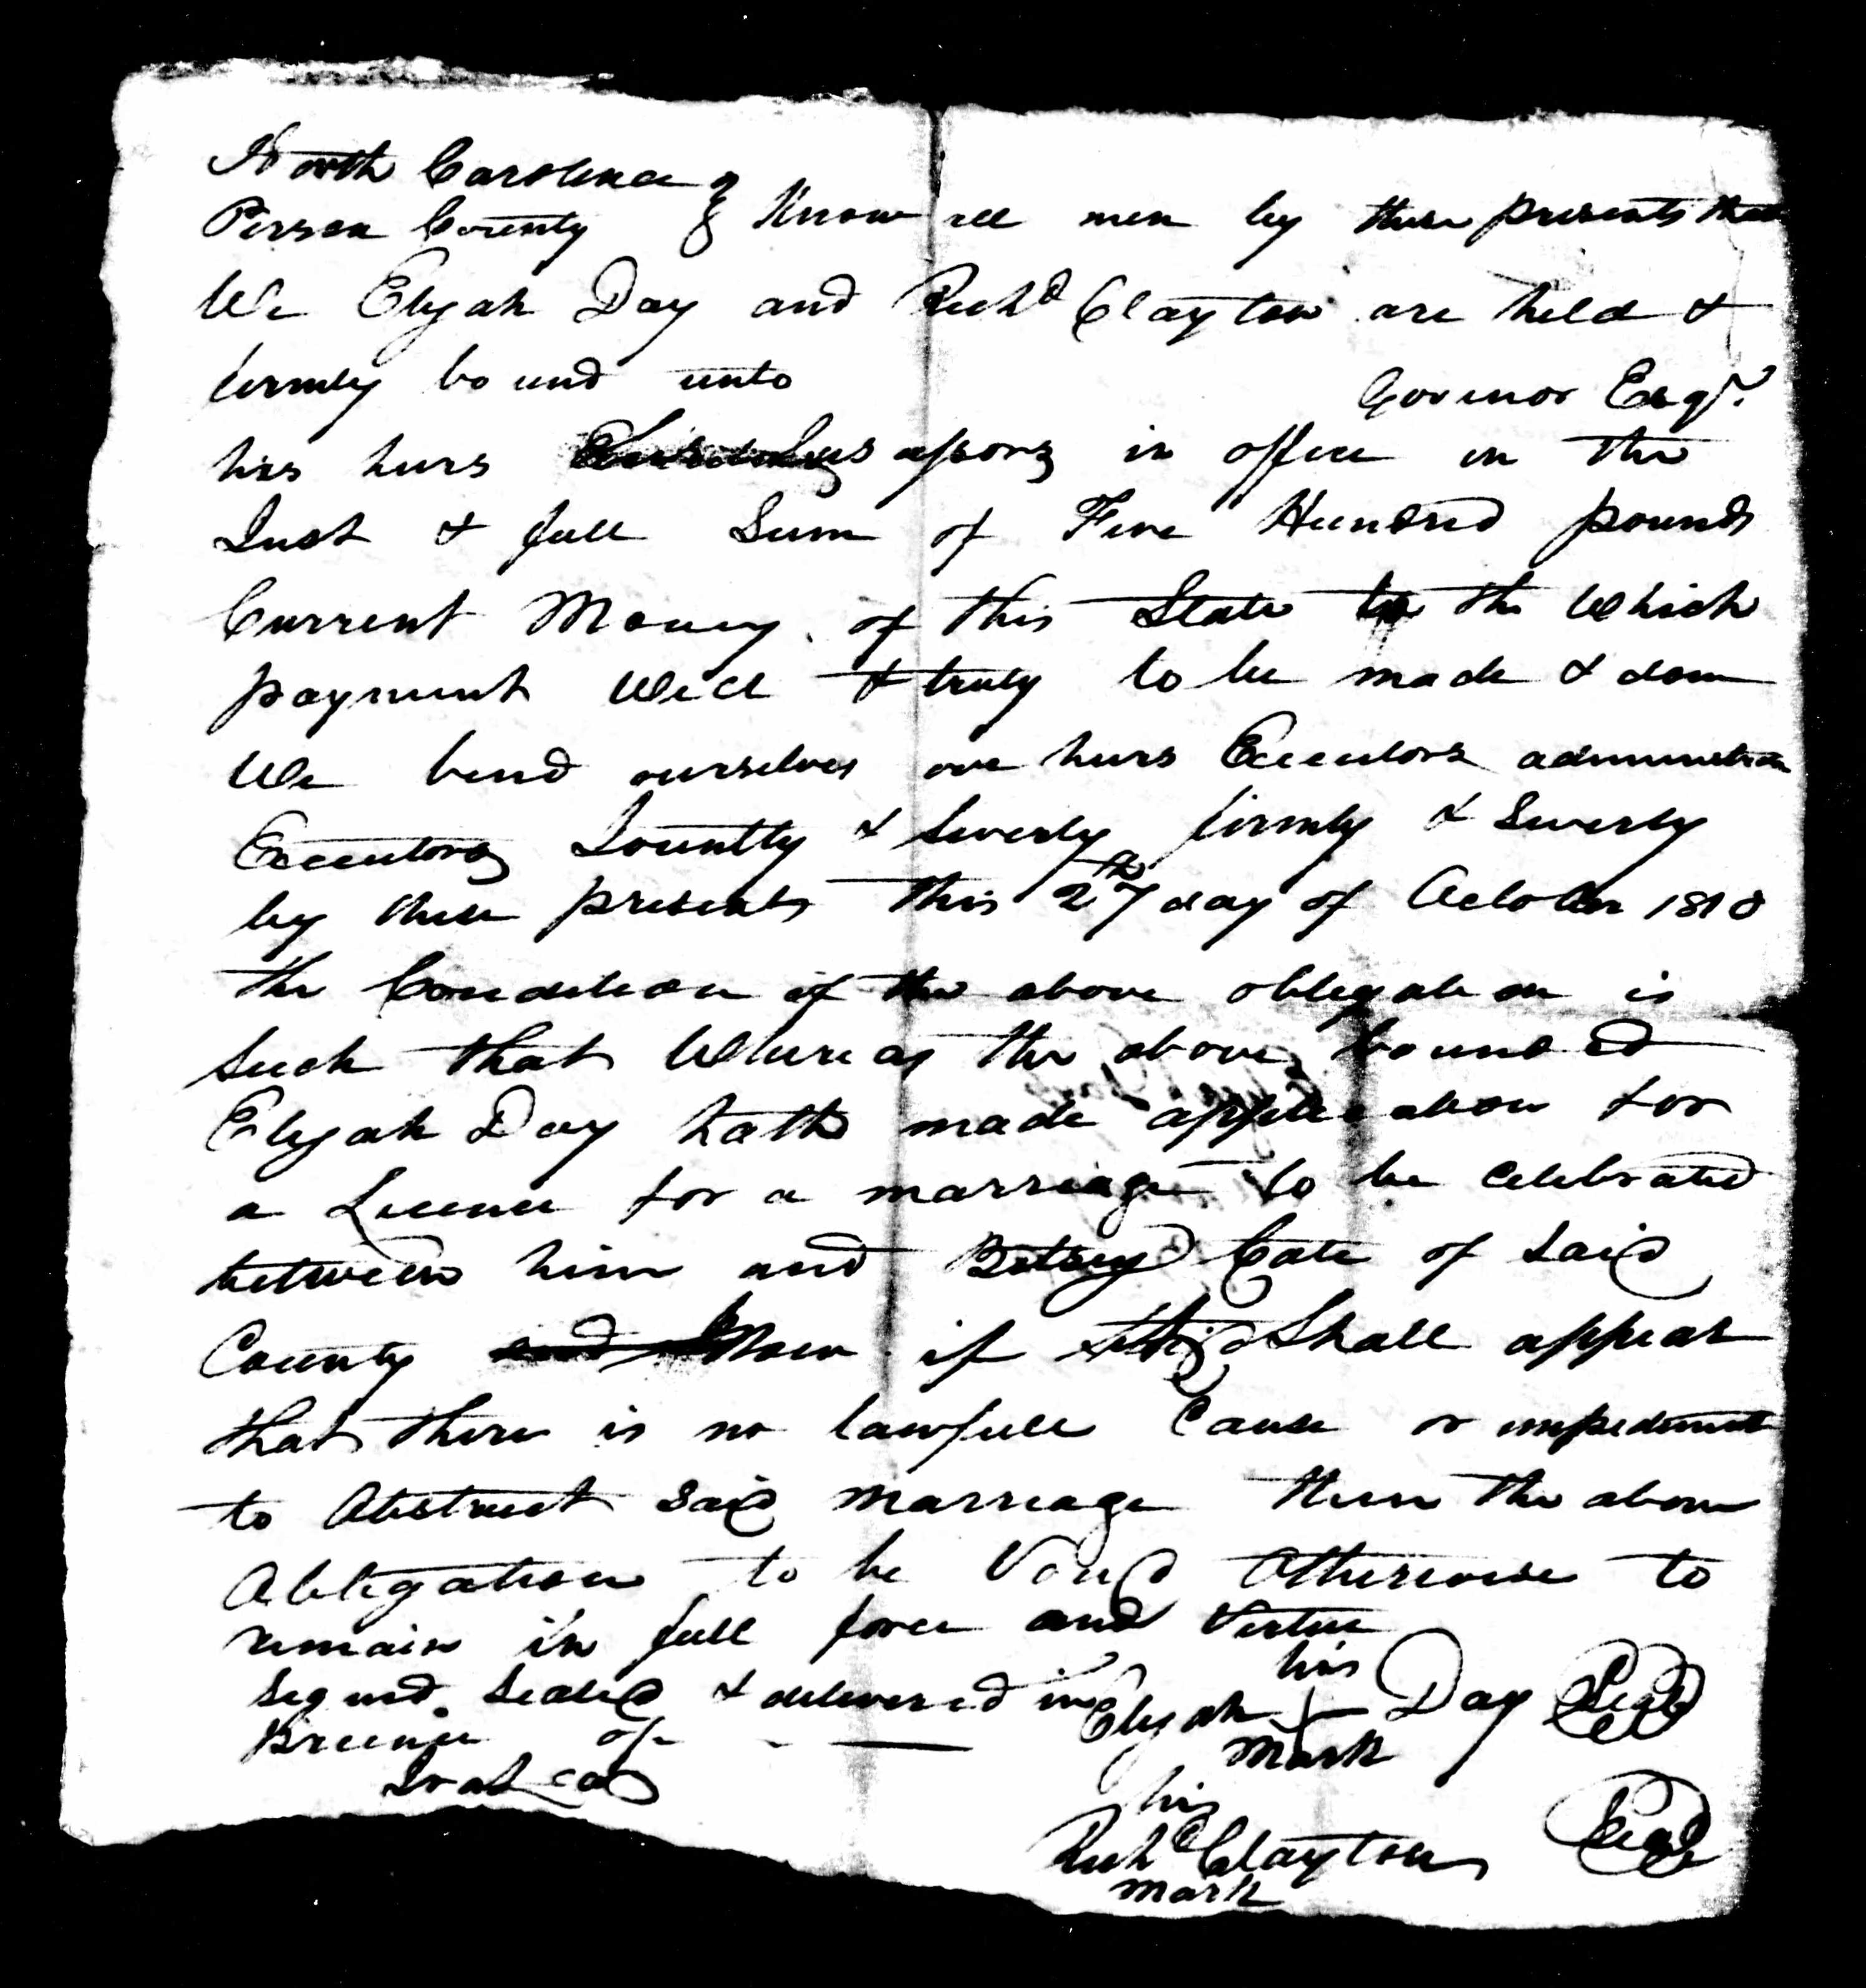 North Carolina }
Person County } Know all men by these presents that
We Elijah Day and Richd Clayton are held &
firmly bound unto Govenor Esqr.
his heirs assors in office in the
Just & full Sum of Five Hundred pounds
Current Money of this State to the Which
payment Well & truly to be made & done
We bend ourselves our heirs Executors administrators
Executors Jountly & Severly firmly & Severly
by these presents this 27th day of October 1810
the Condition of the above obligation is
Such that Whereas the above bounded
Elijah Day hath made application for
a Licence for a marriage to be Celebrated
between him and Betsey Cate of Said
County Now if it Shall appear
that there is no lawfull Cause or impediment
to Abstruct Said marriage then the above
Abligation to be Void Otherwise to
remain in full force and Virtue
Signed. Sealed & delivered in
Presence of
Ira Lea
his
Elijah + Day Seal
mark
his
Richd Clayton Seal
mark